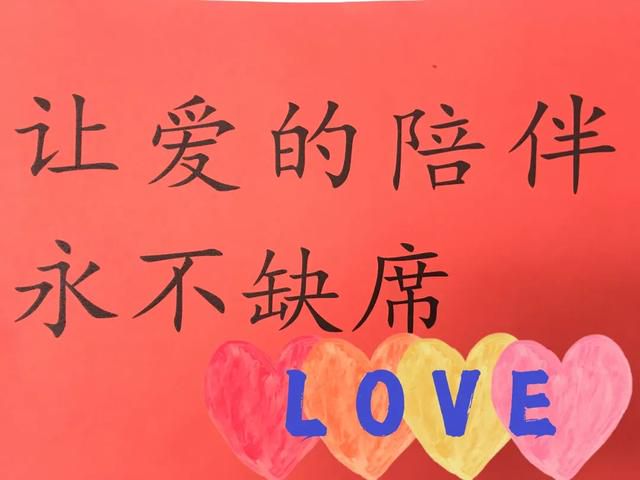 让爱的陪伴
永不缺席
LOVE